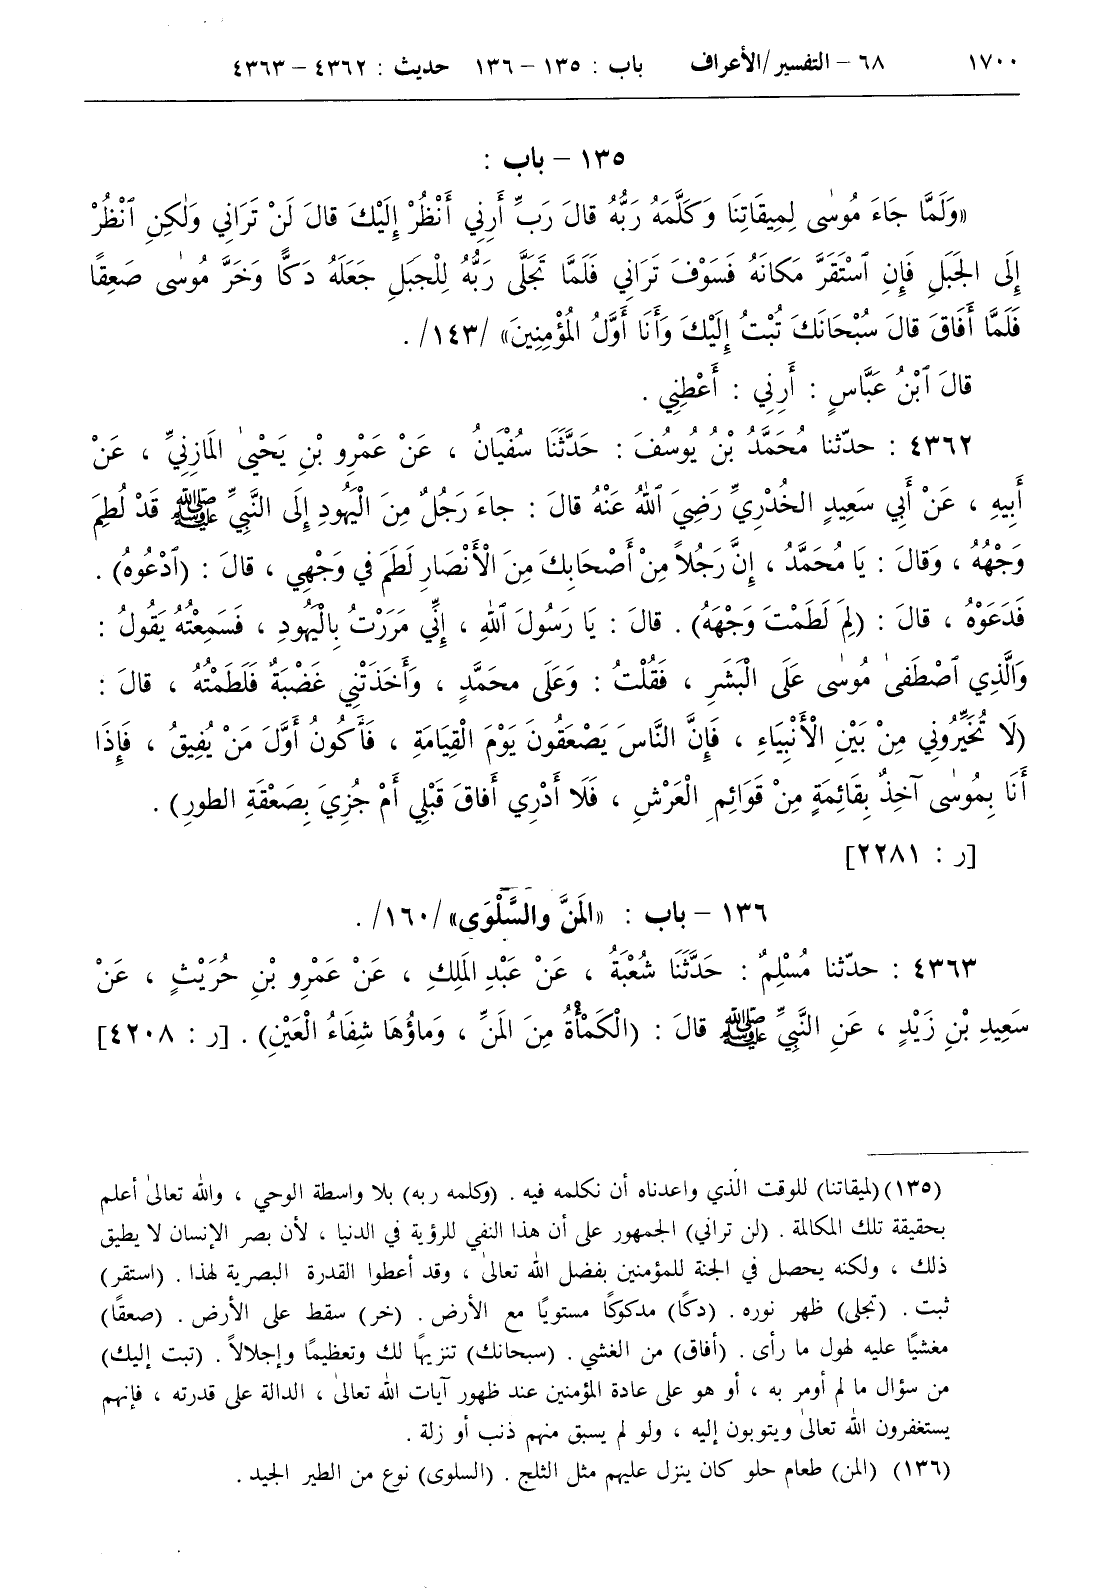 ١٧٠٠ ٦٨ – التفسير/الأعراف باب : ١٣٥ – ١٣٦ حديث : ٤٣٦٢ – ٤٣٦٣
١٣٥ – باب :
«وَلَمَّا جَاءَ مُوسٰى لِمِيقَاتِنَا وَكَلَّمَهُ رَبُّهُ قالَ رَبِّ أَرِنِي أَنْظُرْ إِلَيْكَ قالَ لَنْ تَرَانِي وَلٰكِنِ ٱنْظُرْ
إِلَى الجَبَلِ فَإِنِ ٱسْتَقَرَّ مَكانَهُ فَسَوْفَ تَرَانِي فَلَمَّا تَجَلَّى رَبُّهُ لِلْجَبَلِ جَعَلَهُ دَكًّا وَخَرَّ مُوسٰى صَعِقًا
فَلَمَّا أَفَاقَ قالَ سُبْحَانَكَ تُبْتُ إِلَيْكَ وَأَنَا أَوَّلُ المُؤْمِنِينَ» /١٤٣/ .
قالَ ٱبْنُ عَبَّاسٍ : أَرِنِي : أَعْطِنِي .
٤٣٦٢ : حدّثنا مُحَمَّدُ بْنُ يُوسُفَ : حَدَّثَنَا سُفْيَانُ ، عَنْ عَمْرِو بْنِ يَحْيىٰ المَازِنِيِّ ، عَنْ
أَبِيهِ ، عَنْ أَبِي سَعِيدٍ الخُدْرِيِّ رَضِيَ ٱللهُ عَنْهُ قالَ : جاءَ رَجُلٌ مِنَ الْيَهُودِ إِلَى النَّبِيِّ ﷺ قَدْ لُطِمَ
وَجْهُهُ ، وَقالَ : يَا مُحَمَّدُ ، إِنَّ رَجُلاً مِنْ أَصْحَابِكَ مِنَ الْأَنْصَارِ لَطَمَ في وَجْهِي ، قالَ : (ٱدْعُوهُ) .
فَدَعَوْهُ ، قالَ : (لِمَ لَطَمْتَ وَجْهَهُ) . قالَ : يَا رَسُولَ ٱللهِ ، إِنِّي مَرَرْتُ بِالْيَهُودِ ، فَسَمِعْتُهُ يَقُولُ :
وَالَّذِي ٱصْطَفىٰ مُوسٰى عَلَى الْبَشَرِ ، فَقُلْتُ : وَعَلَى محَمَّدٍ ، وَأَخَذَتْنِي غَضْبَةٌ فَلَطَمْتُهُ ، قالَ :
(لَا تُخَيِّرُونِي مِنْ بَيْنِ الْأَنْبِيَاءِ ، فَإِنَّ النَّاسَ يَصْعَقُونَ يَوْمَ الْقِيَامَةِ ، فَأَكُونُ أَوَّلَ مَنْ يُفِيقُ ، فَإِذَا
أَنَا بِمُوسٰى آخِذٌ بِقَائِمَةٍ مِنْ قَوَائِمِ الْعَرْشِ ، فَلَا أَدْرِي أَفاقَ قَبْلِي أَمْ جُزِيَ بِصَعْقَةِ الطورِ) .
[ر : ٢٢٨١]
١٣٦ – باب : «المَنَّ والسَّلْوَى» /١٦٠/ .
٤٣٦٣ : حدّثنا مُسْلِمٌ : حَدَّثَنَا شُعْبَةُ ، عَنْ عَبْدِ المَلِكِ ، عَنْ عَمْرِو بْنِ حُرَيْثٍ ، عَنْ
سَعِيدِ بْنِ زَيْدٍ ، عَنِ النَّبِيِّ ﷺ قالَ : (الْكَمْأَةُ مِنَ المَنِّ ، وَماؤُهَا شِفَاءُ الْعَيْنِ) . [ر : ٤٢٠٨]
(١٣٥) (لميقاتنا) للوقت الذي واعدناه أن نكلمه فيه . (وكلمه ربه) بلا واسطة الوحي ، والله تعالىٰ أعلم
بحقيقة تلك المكالمة . (لن تراني) الجمهور على أن هذا النفي للرؤية في الدنيا ، لأن بصر الإنسان لا يطيق
ذلك ، ولكنه يحصل في الجنة للمؤمنين بفضل الله تعالىٰ ، وقد أعطوا القدرة البصرية لهذا . (استقر)
ثبت . (تجلى) ظهر نوره . (دكًا) مدكوكًا مستويًا مع الأرض . (خر) سقط على الأرض . (صعقًا)
مغشيًا عليه لهول ما رأى . (أفاق) من الغشي . (سبحانك) تنزيهًا لك وتعظيمًا وإجلالاً . (تبت إليك)
من سؤال ما لم أومر به ، أو هو على عادة المؤمنين عند ظهور آيات الله تعالىٰ ، الدالة على قدرته ، فإنهم
يستغفرون الله تعالىٰ ويتوبون إليه ، ولو لم يسبق منهم ذنب أو زلة .
(١٣٦) (المن) طعام حلو كان ينزل عليهم مثل الثلج . (السلوى) نوع من الطير الجيد .